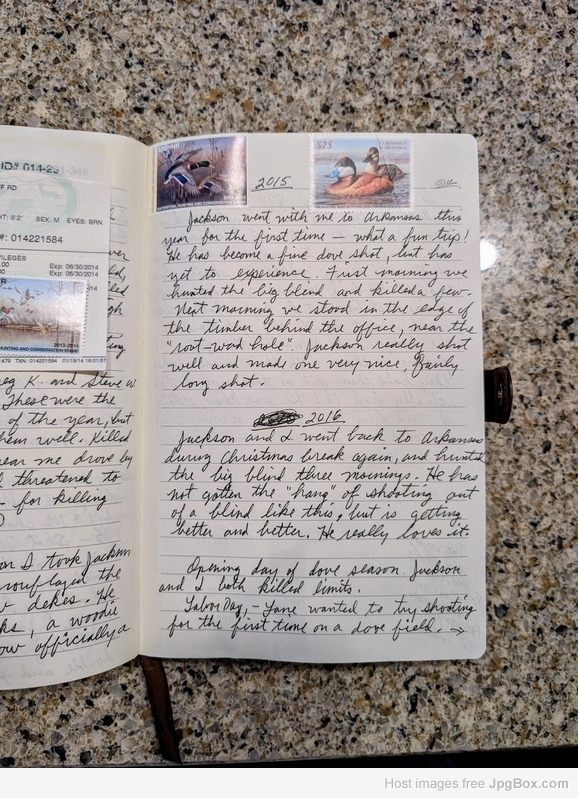 ID# 614-231-348
F RD
HT: 6'2" SEX: M EYES: BRN
#: 014221584
VILEGES
.00 Exp: 06/30/2014
.00 Exp: 06/30/2014
R
2013-2014
HUNTING AND CONSERVATION STAMP
1479 TXN: 014221584 01/19/14 16:01:57
eg K. and Steve W
These were the
of the year, but
hem well. Killed
near me drove by
d threatened to
- for killing
on I took Jackson
amouflaged the
dekes. He
ks, a woodie
ow officially a
$25
2015
Jackson went with me to Arkansas this
year for the first time — what a fun trip!
He has become a fine dove shot, but has
yet to experience. First morning we
hunted the big blind and killed a few.
Next morning we stood in the edge of
the timber behind the office, near the
"root-wad hole". Jackson really shot
well and made one very nice, fairly
long shot.
2016
Jackson and I went back to Arkansas
during Christmas break again, and hunted
the big blind three mornings. He has
not gotten the "hang" of shooting out
of a blind like this, but is getting
better and better. He really loves it.
Opening day of dove season Jackson
and I both killed limits.
Labor Day, - Lane wanted to try shooting
for the first time on a dove field. →
Host images free JpgBox.com